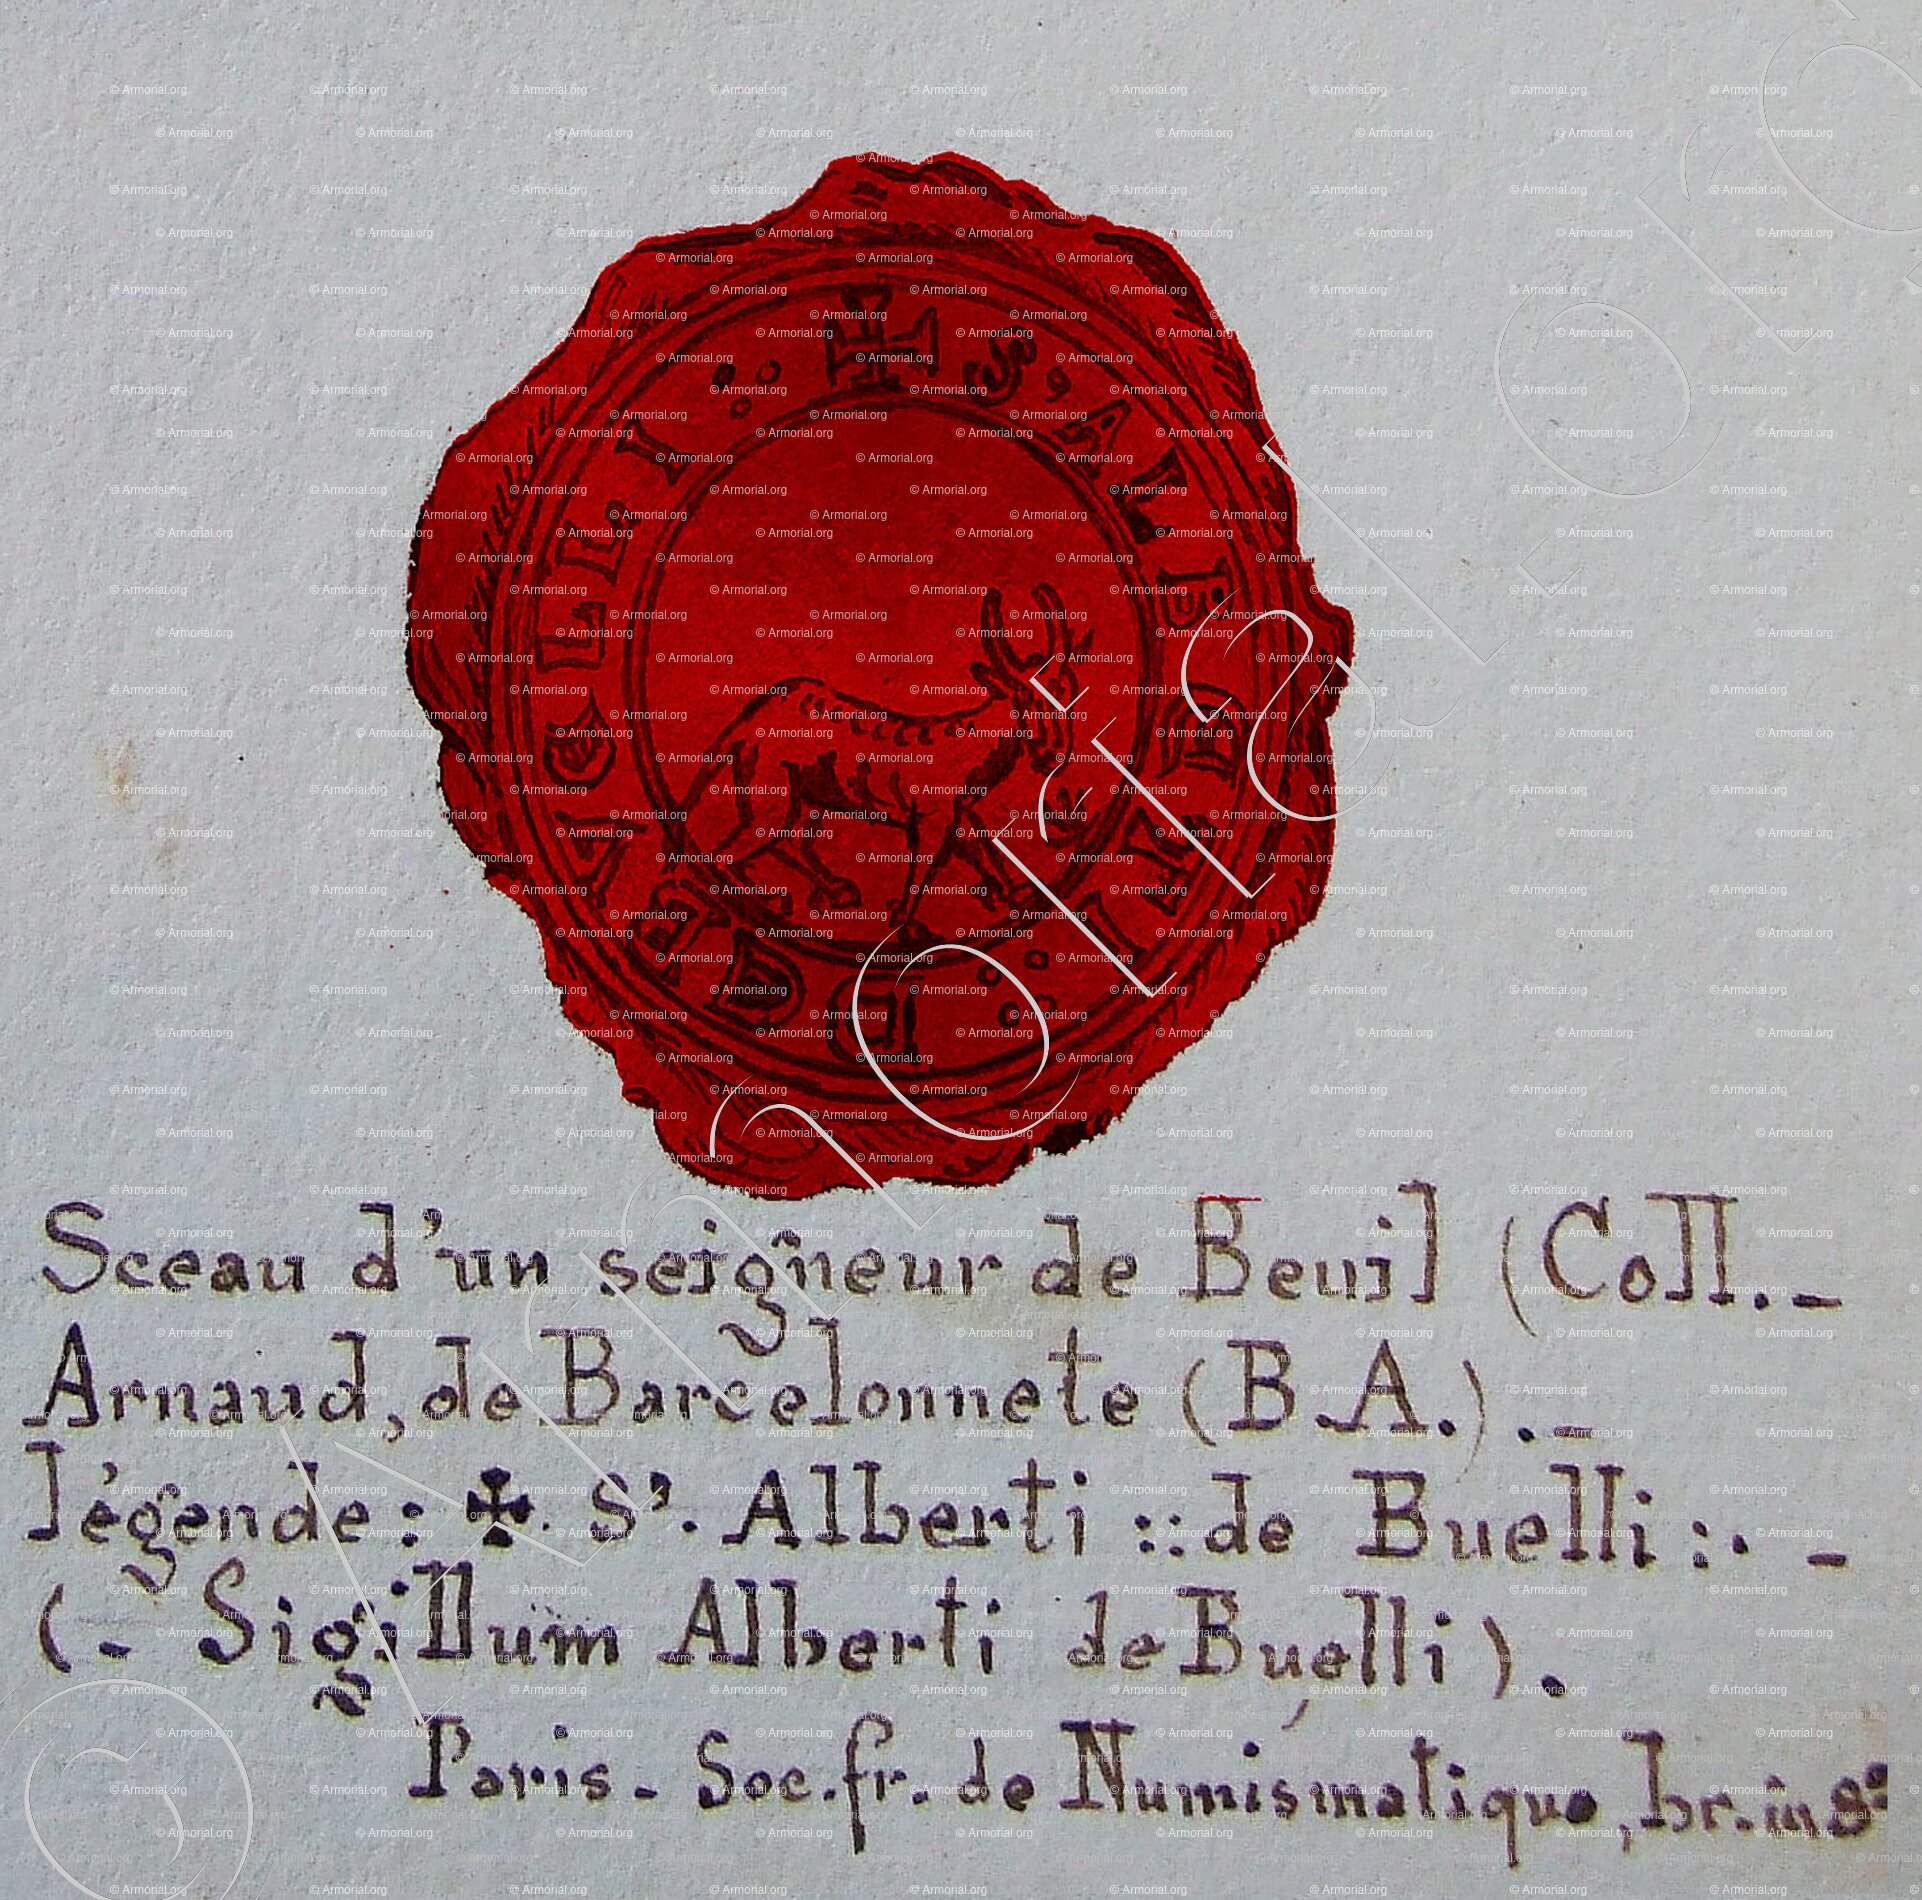 ✠ S' ALBERTI :: DE BUELLI :·
Sceau d'un seigneur de Beuil (Coll.-
Arnaud, de Barcelonnete (B.A.).-
légende : ✠. S'. Alberti :: de Buelli :. -
(- Sigillum Alberti de Buelli).
Paris - Soc. fr. de Numismatique, br. in 8º
© Armorial.org